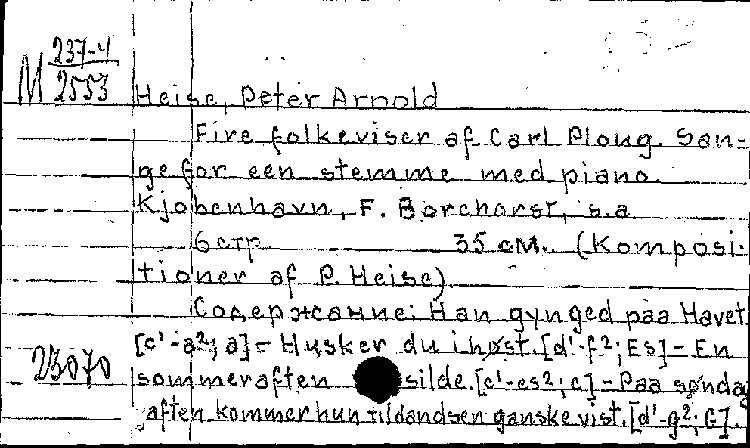 M 237-4
2553
Heise, Peter Arnold
Fire folkeviser af Carl Ploug. San-
ge for een stemme med piano
Kjobenhavn, F. Borchorst, s.a.
6 стр. 35 см. (Komposi-
tioner af P. Heise)
Содержание: Han gynged paa Havet
[c'-a²; a] - Husker du i høst. [d'-f²; Es] - En
23070
sommeraften silde. [c'-es²; c] - Paa søndag
aften kommer hun til dandsen ganske vist. [d'-g²; G].